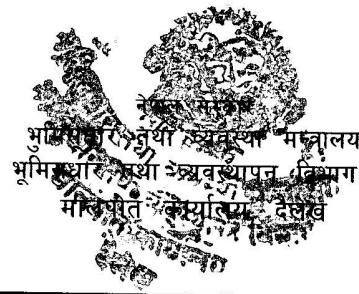 नेपाल सरकार
भुमिसुधार तथा व्यवस्था मन्त्रालय
भूमिसुधार तथा व्यवस्थापन विभाग
मालपोत कार्यालय, दैलेख